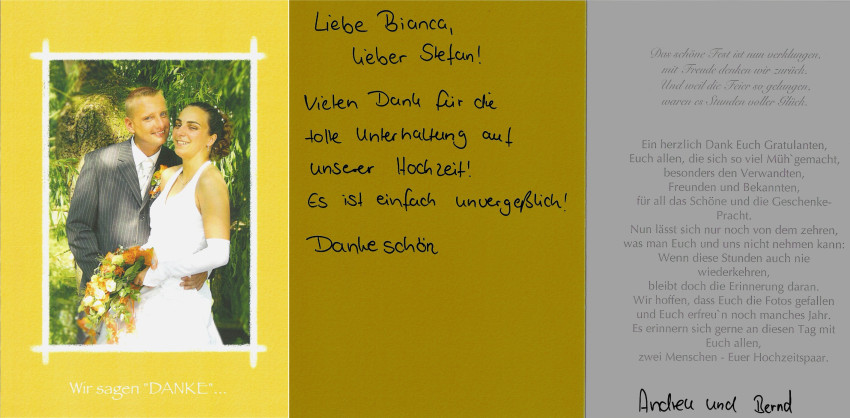 Wir sagen "DANKE"...
Liebe Bianca,
lieber Stefan!
Vielen Dank für die
tolle Unterhaltung auf
unserer Hochzeit!
Es ist einfach unvergeßlich!
Dankeschön
Das schöne Fest ist nun verklungen,
mit Freude denken wir zurück.
Und weil die Feier so gelungen,
waren es Stunden voller Glück.
Ein herzlich Dank Euch Gratulanten,
Euch allen, die sich so viel Müh`gemacht,
besonders den Verwandten,
Freunden und Bekannten,
für all das Schöne und die Geschenke-
Pracht.
Nun lässt sich nur noch von dem zehren,
was man Euch und uns nicht nehmen kann:
Wenn diese Stunden auch nie
wiederkehren,
bleibt doch die Erinnerung daran.
Wir hoffen, dass Euch die Fotos gefallen
und Euch erfreu`n noch manches Jahr.
Es erinnern sich gerne an diesen Tag mit
Euch allen,
zwei Menschen - Euer Hochzeitspaar.
Andrea und Bernd